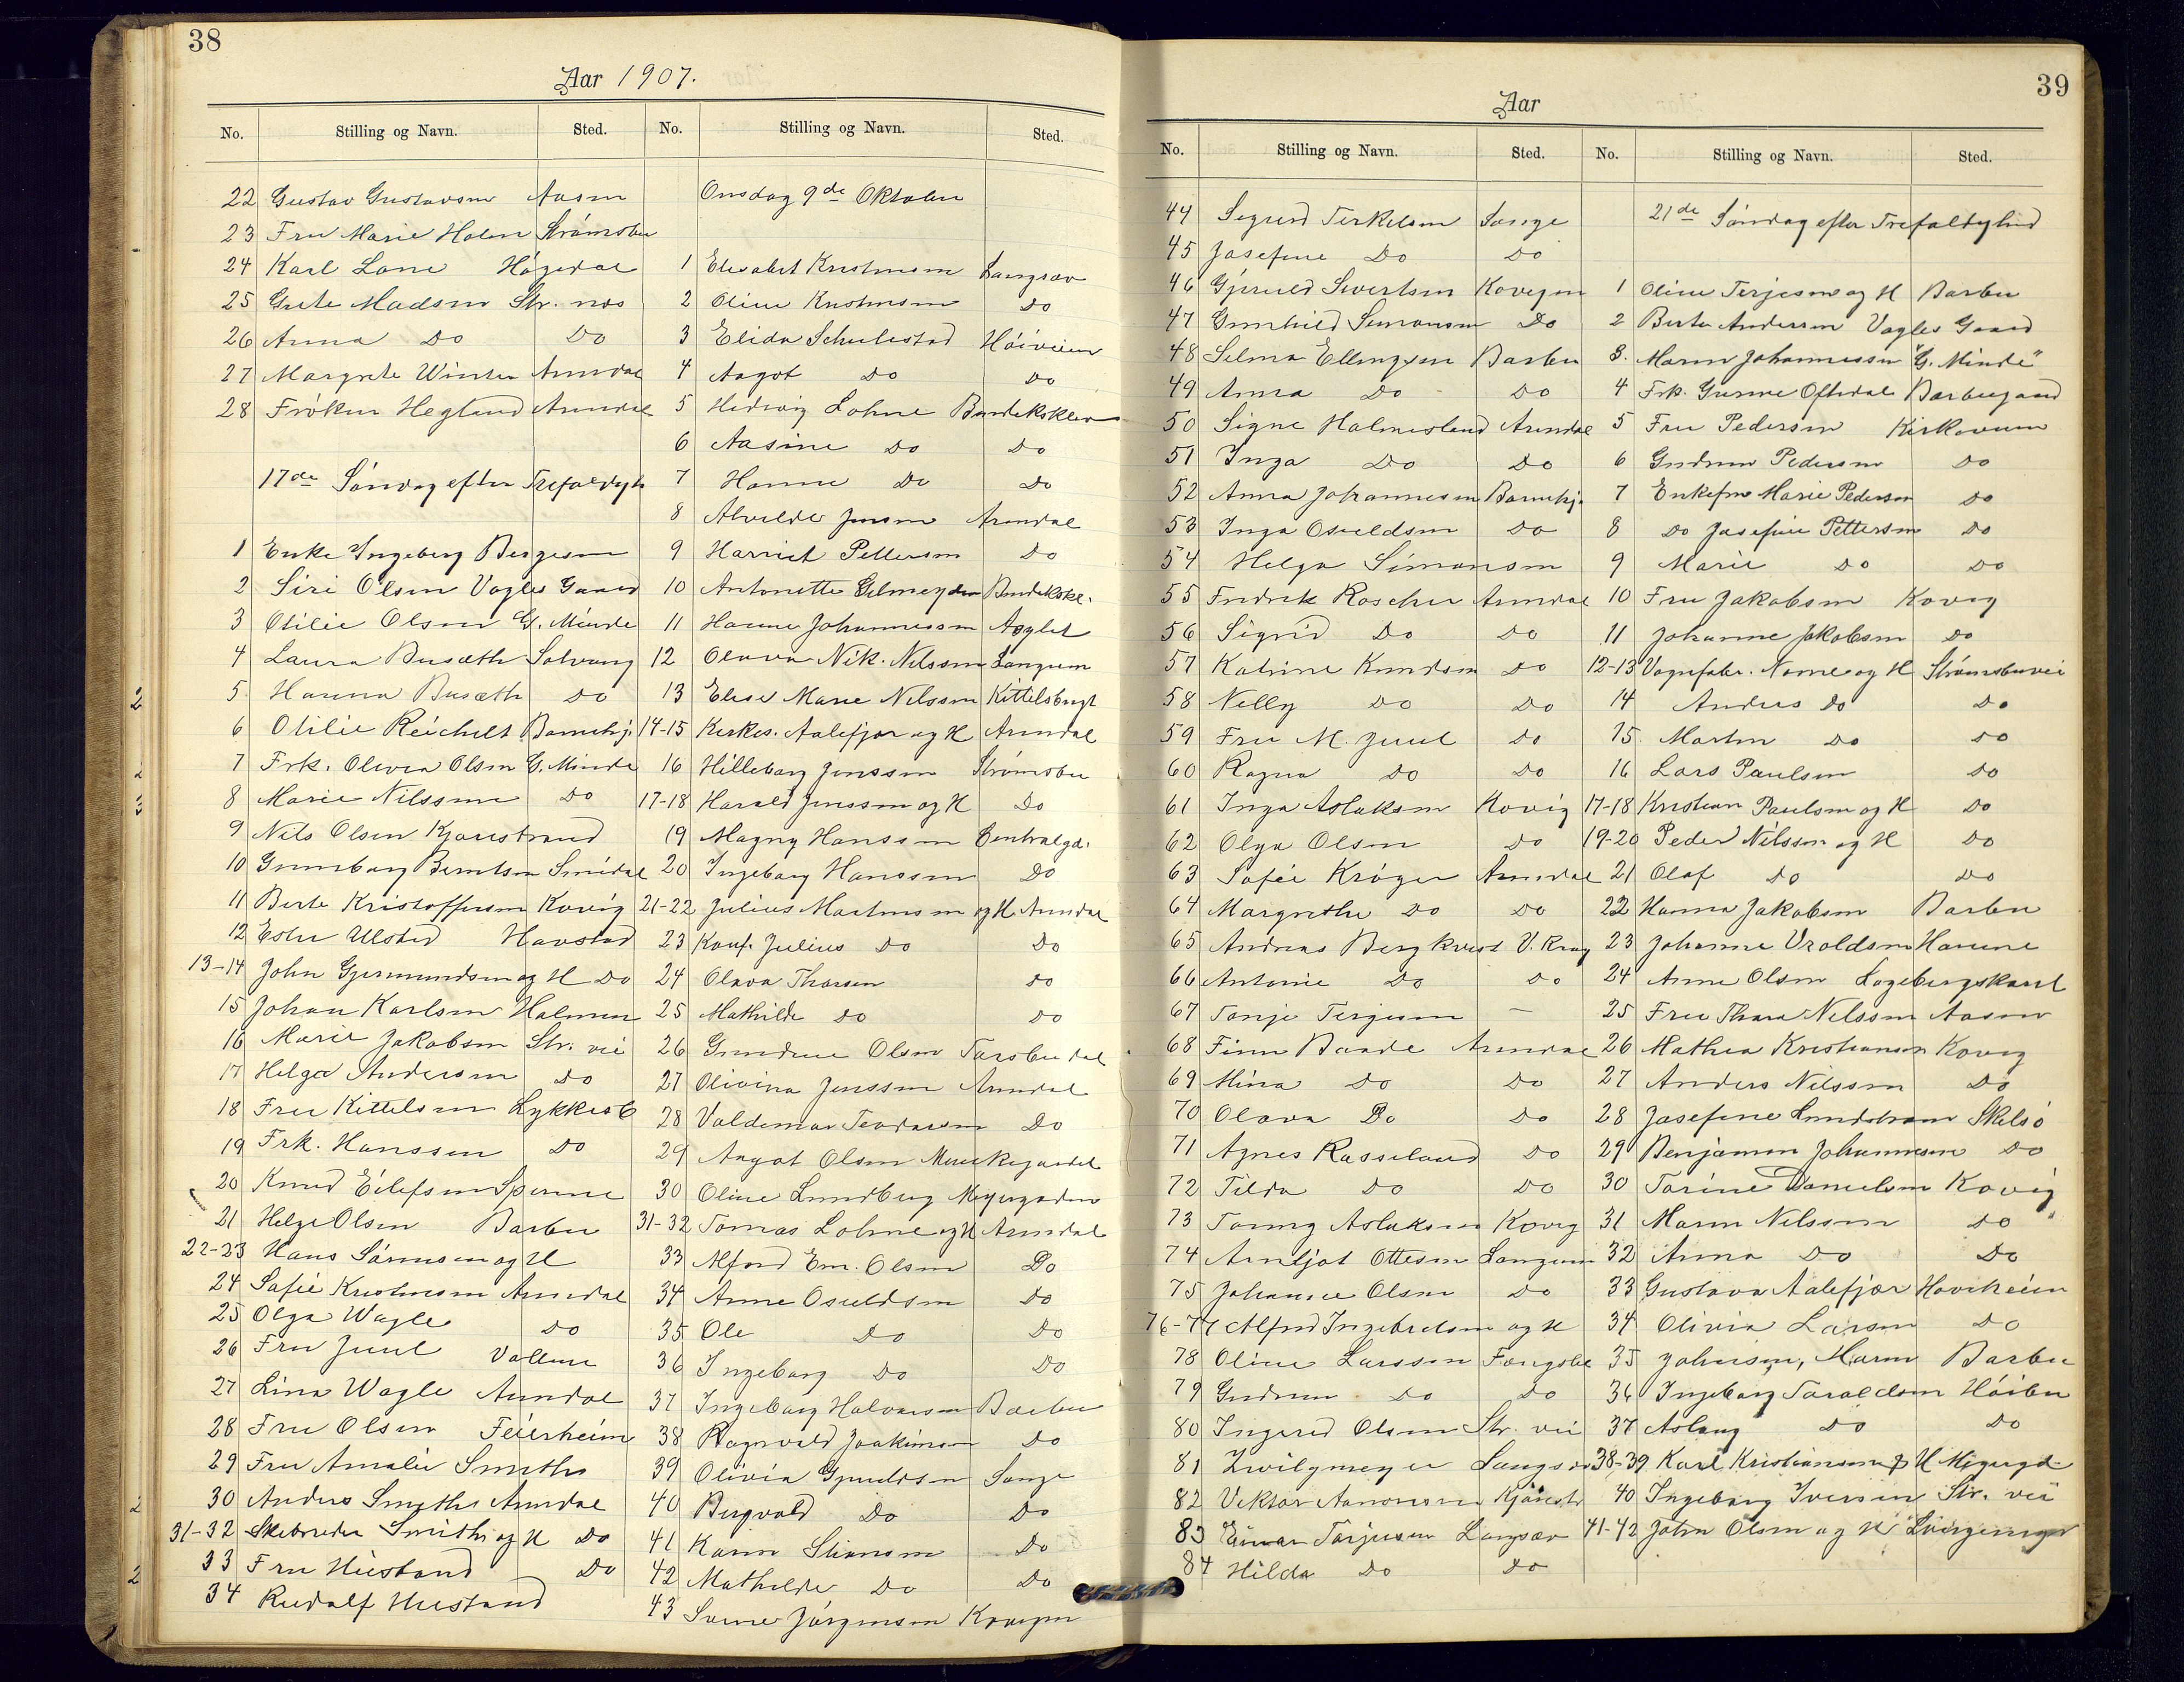 38
Aar 1907.
No. Stilling og Navn. Sted.
22 Gustav Gustavsen Aasen
23 Fru Marie Holm Strømsbu
24 Karl Lone Høgedal
25 Grete Madsen Str. næs
26 Anna Do Do
27 Margrete Winter Arendal
28 Frøken Hegland Arendal
17de Søndag efter Trefoldigh
1 Enke Ingeborg Bergesen
2 Siri Olsen Vogles Gaard
3 Otilie Olsen G. Minde
4 Laura Busæth Solvang
5 Hanna Busæth Do
6 Otilie Reichelt Barnehj.
7 Frk. Olivia Olsen G. Minde
8 Marie Nilssen Do
9 Nils Olsen Kjørrestrand
10 Gunnborg Berntsen Smidal
11 Berte Kristoffersen Kovig
12 Ester Ulsted Havstad
13-14 John Gjermundsen og H Do
15 Johan Karlsen Holmen
16 Marie Jakobsen Str. vei
17 Helga Andersen Do
18 Fru Kittelsen Lykkesb
19 Frk. Hanssen Do
20 Knud Eilefsen Sperme
21 Helge Olsen Barbu
22-23 Hans Sørensen og H
24 Sofie Kristensen Arendal
25 Olga Wagle Do
26 Fru Juul Vollene
27 Lina Wagle Arendal
28 Fru Olsen Feierheim
29 Fru Amalie Smith
30 Anders Smith Arendal
31-32 Skibsreder Smith og H Do
33 Fru Hustand Do
34 Rudolf Hustand
No. Stilling og Navn. Sted.
Onsdag 9de Oktober
1 Elisabet Kristensen Langsæv
2 Oline Kristensen Do
3 Elida Schulestad Høiveien
4 Aagot Do Do
5 Hedvig Lohne Bendiksklev
6 Aasine Do Do
7 Hanne Do Do
8 Alvilde Jensen Arendal
9 Harriet Pettersen Do
10 Antonette Bendikskl.
11 Hanne Johannessen Asylet
12 Olava Nik. Nilssen Langum
13 Elise Marie Nilssen Kittelsbugt
14-15 Kirkes. Aalefjær og H Arendal
16 Hilleborg Jenssen Strømsbu
17-18 Harald Jenssen og H Do
19 Magny Hanssen Centralgd.
20 Ingeborg Hanssen Do
21-22 Julius Martinsen og H Arendal
23 Konf. Julius Do Do
24 Olava Thorsen Do
25 Mathilde Do Do
26 Gundrun Olsen Torsbudal
27 Olivina Jenssen Arendal
28 Valdemar Teodorsen Do
29 Aagot Olsen Munkegaardet
30 Oline Lundberg Meyergården
31-32 Tomas Lohne og H Arendal
33 Alfred Em. Olsen Do
34 Anne Osuldsen Do
35 Ole Do Do
36 Ingeborg Do Do
37 Ingeborg Halvorsen Barbu
38 Ragnvald Joakimsen Do
39 Olivia Gjeruldsen Songe
40 Bergvald Do Do
41 Karin Stiansen Do
42 Mathilde Do Do
43 Jørgensen Kovigen
39
Aar
No. Stilling og Navn. Sted.
44 Sigurd Terkelsen Songe
45 Josefine Do Do
46 Gjeruld Sivertsen Kovigen
47 Gunhild Simonsen Do
48 Selma Ellingsen Barbu
49 Anna Do Do
50 Signe Holmesland Arendal
51 Inga Do Do
52 Anna Johannesen Barnehj.
53 Inga Osuldsen Do
54 Helga Simonsen
55 Fredrik Roscher Arendal
56 Sigrid Do Do
57 Katrine Knudsen Do
58 Nelly Do Do
59 Fru M. Juul Do
60 Ragna Do Do
61 Inga Aslaksen Kovig
62 Olga Olsen Do
63 Sofie Krøger Arendal
64 Margrethe Do Do
65 Andreas Bergkvist V. Krag
66 Antonie Do Do
67 Tonje Terjesen —
68 Finn Baade Arendal
69 Mina Do Do
70 Olava Do Do
71 Agnes Rasseland Do
72 Tilda Do Do
73 Tonny Aslaksen Kovig
74 Arnljot Ottesen Langum
75 Johanne Olsen Do
76-77 Alfred Ingebretsen og H
78 Oline Larssen
79 Gudrun Do Do
80 Ingerid Olsen Str. vei
81 Zwilgmeyer Langsæ
82 Viktor Aanonsen Kjørestr
83 Einar Torjusen Langsæv
84 Hilda Do Do
No. Stilling og Navn. Sted.
21de Søndag efter Trefoldighed
1 Oline Terjesen og H Barbu
2 Berte Andersen Vogles Gaard
3. Maren Johannessen "G. Minde"
4 Frk. Gunne Oftedal Barbugaard
5 Fru Pedersen Kirkeveien
6 Gudrun Pedersen Do
7 Enkefru Marie Pedersen Do
8 Do Josefine Pettersen Do
9 Marie Do Do
10 Fru Jakobsen Kovig
11 Johanne Jakobsen Do
12-13 Vognfabr. Nome og H Strømsbuvei
14 Anders Do Do
15 Martin Do Do
16 Lars Paulsen Do
17-18 Kristian Paulsen og H Do
19-20 Peder Nilssen og H Do
21 Olaf Do Do
22 Hanna Jakobsen Barbu
23 Johanne Vroldsen Havene
24 Anne Olsen Logebergskard
25 Fru Thora Nelssen Aasen
26 Mathea Kristiansen Kovig
27 Anders Nilssen Do
28 Josefine Lundstrøm Skilsø
29 Benjamin Johannesen Do
30 Torine Danielsen Kovig
31 Maren Nilssen Do
32 Anna Do Do
33 Gustava Aalefjær Havikeien
34 Olivia Larsen Do
35 Johnsen, Maren Barbu
36 Ingeborg Taraldsen Høibu
37 Aslaug Do Do
38-39 Karl Kristiansen & H Meyergd
40 Ingeborg Iversen Str. vei
41-42 John Olsen og H